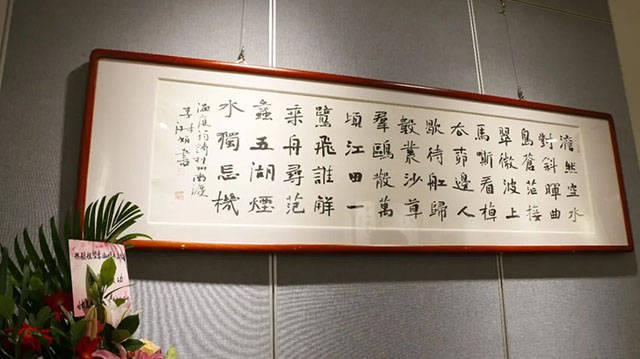 澹然空水
對斜暉曲
島蒼茫接
翠微波上
馬嘶看棹
去柳邊人
歇待舩歸
數叢沙草
羣鷗散萬
頃江田一
鷺飛誰解
乗舟尋范
蠡五湖煙
水獨忘機
溫庭筠詩利州南渡